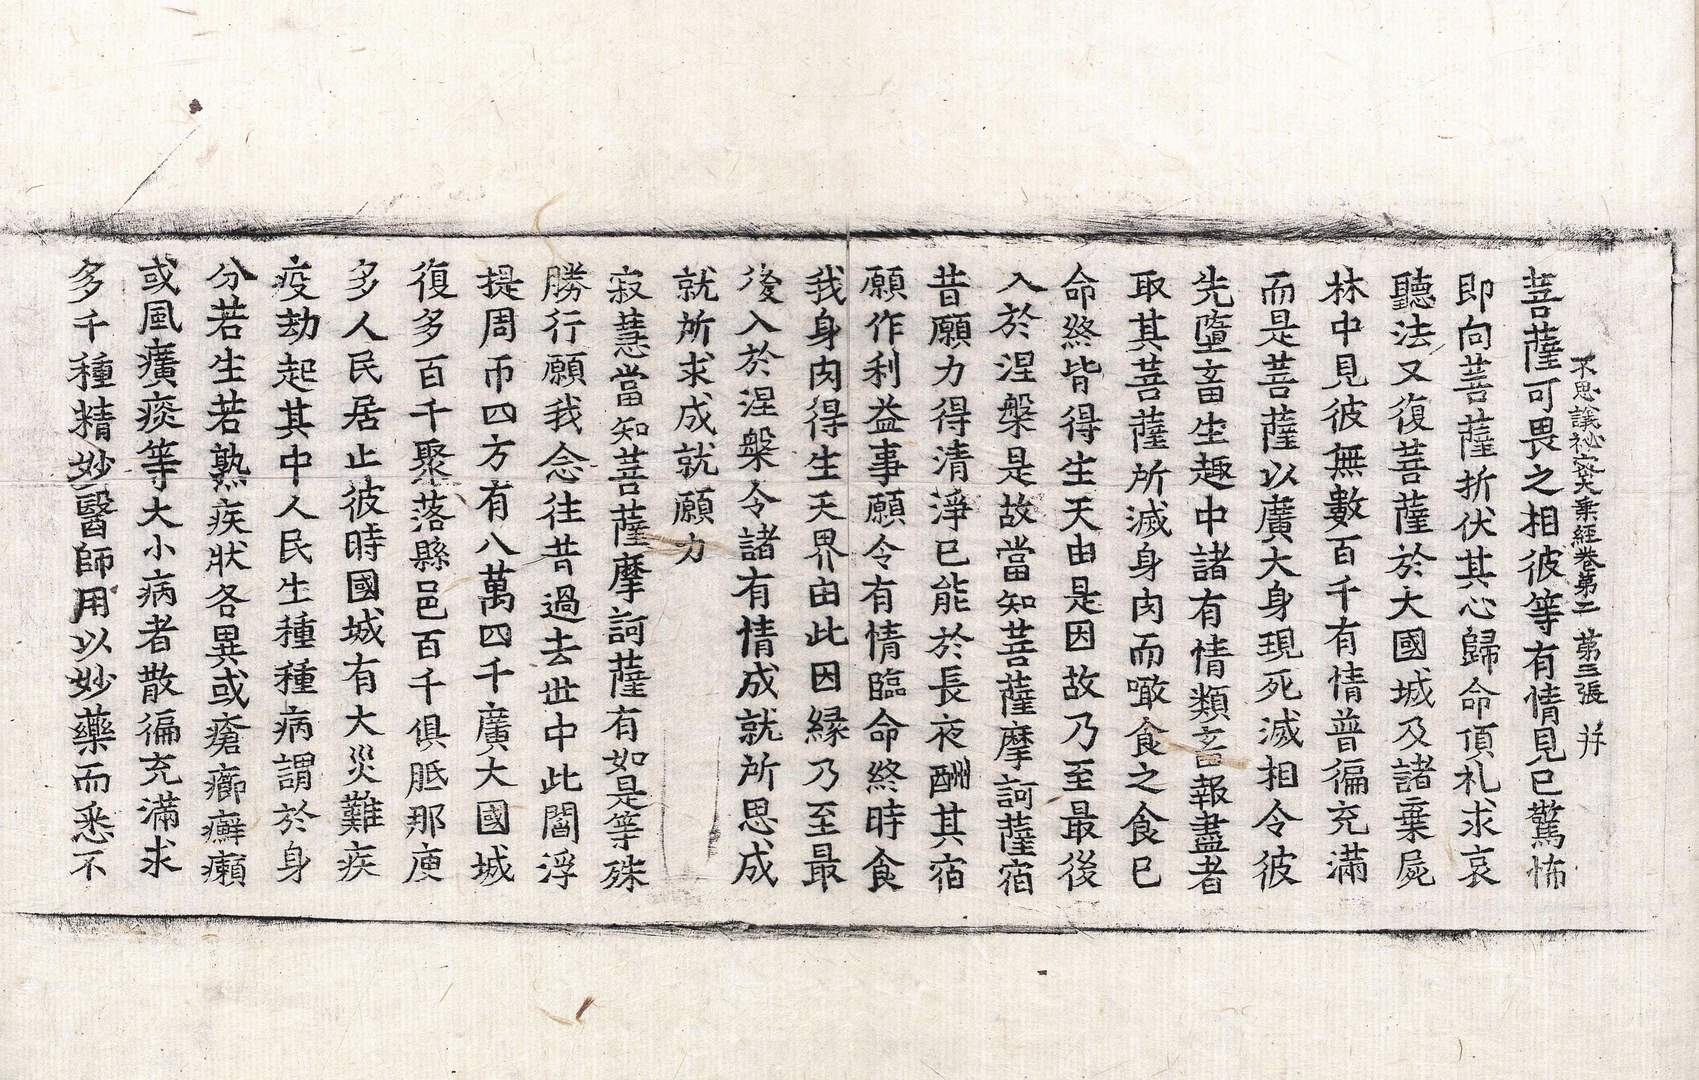 不思議祕密大乘經卷第二 第三張 幷
菩薩可畏之相彼等有情見已驚怖
即向菩薩折伏其心歸命頂礼求哀
聽法又復菩薩於大國城及諸棄屍
林中見彼無數百千有情普徧充滿
而是菩薩以廣大身現死滅相令彼
先墮畜生趣中諸有情類畜報盡者
取其菩薩所滅身肉而噉食之食已
命終皆得生天由是因故乃至最後
入於涅槃是故當知菩薩摩訶薩宿
昔願力得清淨已能於長夜酬其宿
願作利益事願令有情臨命終時食
我身肉得生天界由此因緣乃至最
後入於涅槃令諸有情成就所思成
就所求成就願力
寂慧當知菩薩摩訶薩有如是等殊
勝行願我念往昔過去世中此閻浮
提周帀四方有八萬四千廣大國城
復多百千聚落縣邑百千俱胝那庾
多人民居止彼時國城有大災難疾
疫劫起其中人民生種種病謂於身
分若生若熟疾狀各異或瘡癤癬癩
或風癀痰等大小病者散徧充滿求
多千種精妙醫師用以妙藥而悉不